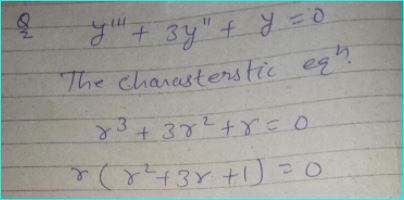 Q/2 y''' + 3y'' + y = 0
The charasterstic eqⁿ.
r³ + 3r² + r = 0
r(r² + 3r + 1) = 0